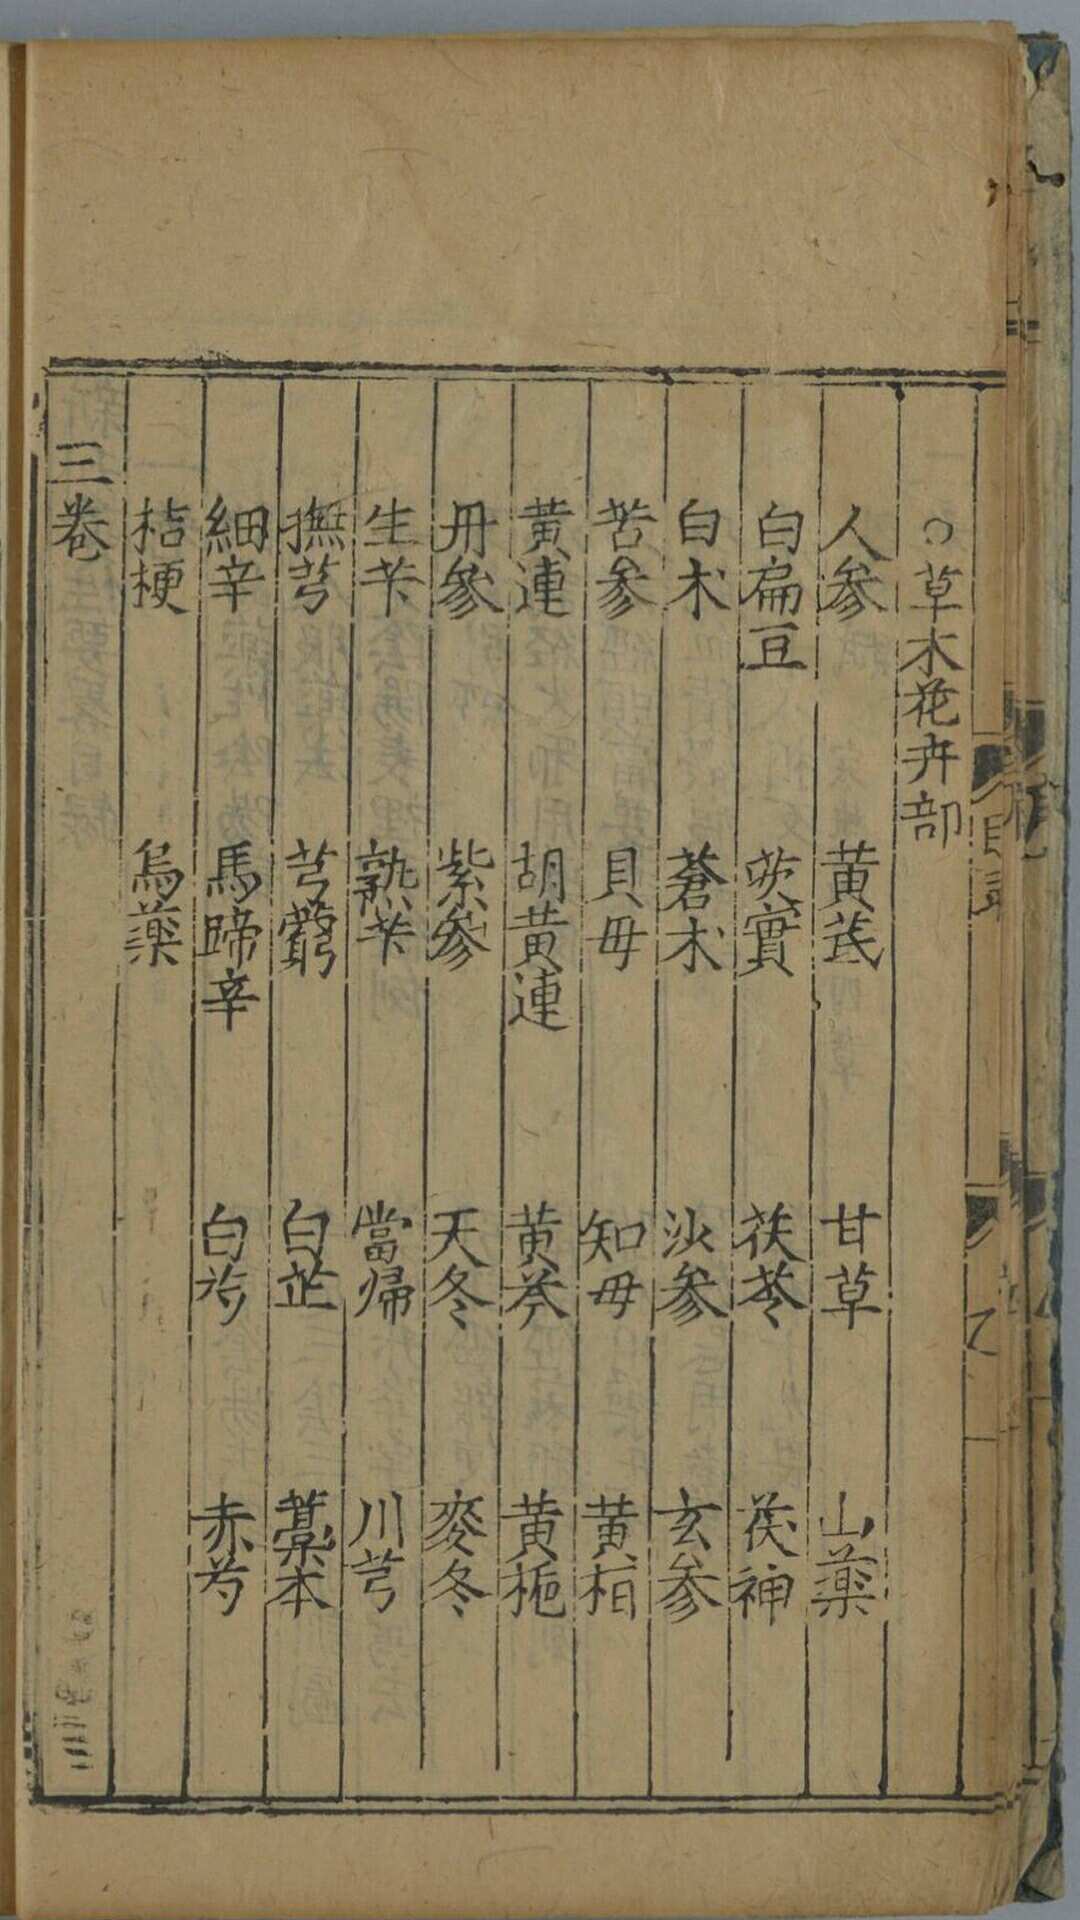 ○草木花卉部
人參　黃芪　甘草　山藥
白扁豆　芡實　茯苓　茯神
白朮　蒼朮　沙參　玄參
苦參　貝母　知母　黃栢
黃連　胡黃連　黃芩　黃梔
丹參　紫參　天冬　麥冬
生芐　熟芐　當歸　川芎
撫芎　芎藭　白芷　藁本
細辛　馬蹄辛　白芍　赤芍
桔梗　烏藥
三卷